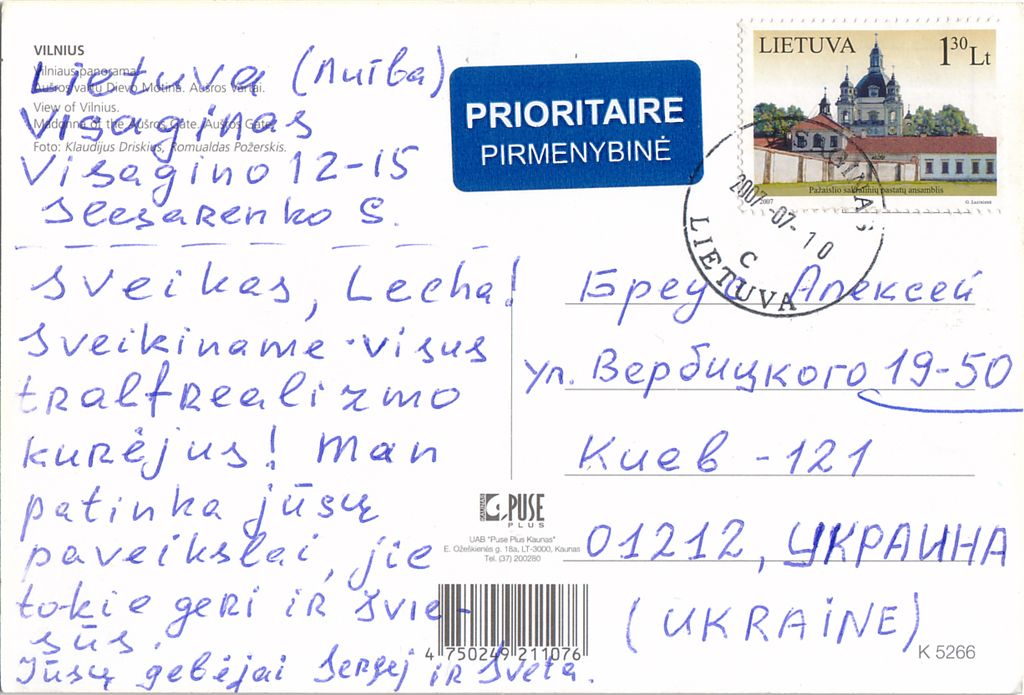 VILNIUS
Vilniaus panorama.
Aušros vartų Dievo Motina. Aušros Vartai.
View of Vilnius.
Madonna of the Aušros Gate. Aušros Gate.
Foto: Klaudijus Driskius, Romualdas Požerskis.
Lietuva (Литва)
Visaginas
Visagino 12-15
Slesarenko S.
Sveikas, Lecha!
Sveikiname visus
tralfrealizmo
kurėjus! Man
patinka jūsų
paveikslai, jie
tokie geri ir švie-
sūs.
Jūsų gebėjai Sergej ir Sveta.
PRIORITAIRE
PIRMENYBINĖ
LIETUVA 1 30 Lt
Pažaislio sakralinių pastatų ansamblis
2007
2007-07-10
C
LIETUVA
Алексей
ул. Вербицкого 19-50
Киев - 121
01212, УКРАИНА
(UKRAINE)
PUSE
PLUS
UAB "Puse Plus Kaunas"
E. Ožeškienės g. 18a, LT-3000, Kaunas
Tel. (37) 200280
4 750249 211076
K 5266